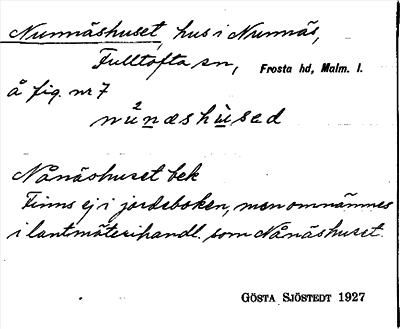 Nunnäshuset, hus i Nunnäs,
Fulltofta sn, Frosta hd, Malm. l.
å fig. nr 7
nǜnæshùsed
Nånäshuset bek
Finns ej i jordeboken, men omnämnes
i lantmäterihandl. som Nånäshuset.
GÖSTA SJÖSTEDT 1927